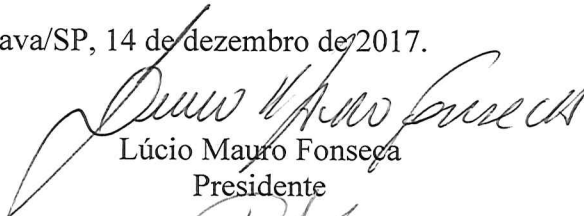 ava/SP, 14 de dezembro de 2017.
Lúcio Mauro Fonseca
Presidente